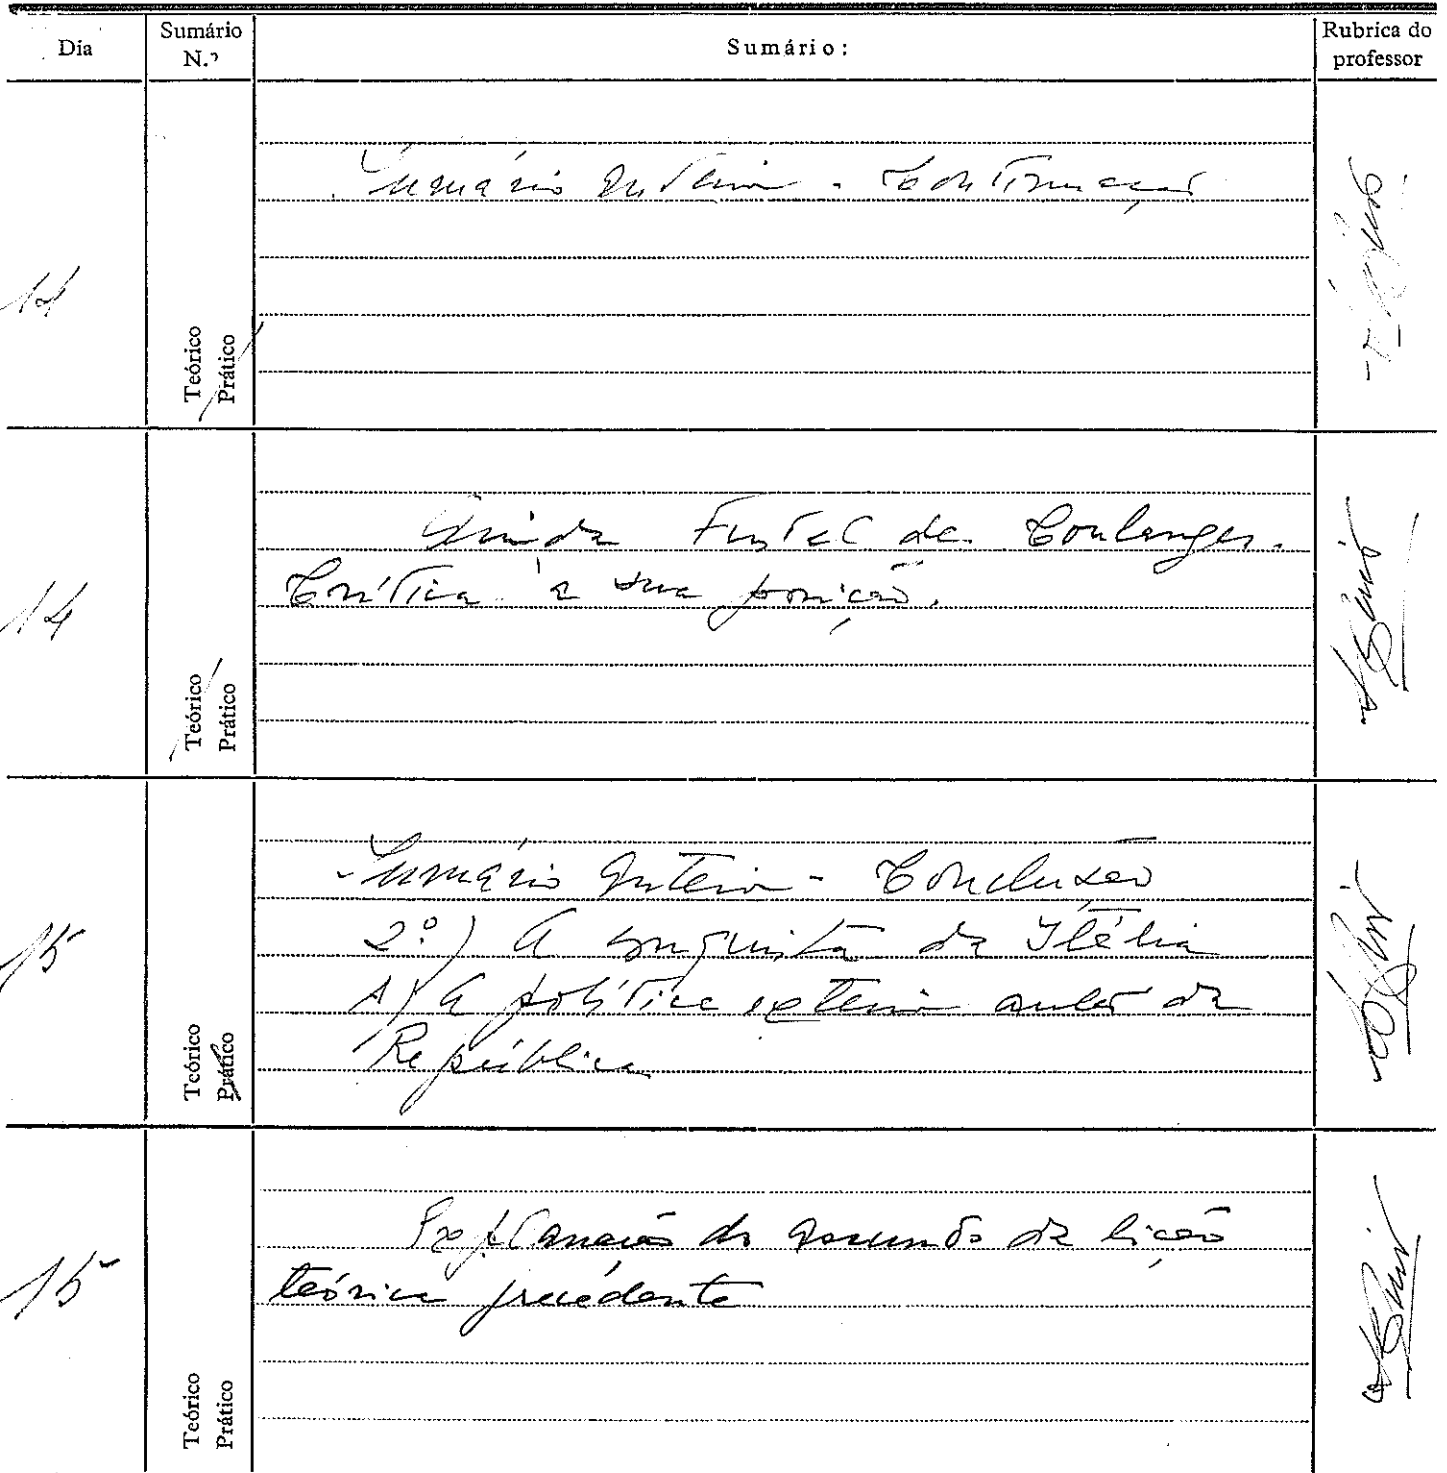 Dia
Sumário
N.º
Sumário:
Rubrica do
professor
14
Sumário anterior - Continuação
Teórico
Prático
14
Ainda Fustel de Coulanges.
Crítica à sua posição.
Teórico
Prático
15
Sumário anterior - Conclusão
2º) A conquista da Itália
A) A política exterior antes da
República
Teórico
Prático
15
Explanação do assunto da lição
teórica precedente
Teórico
Prático